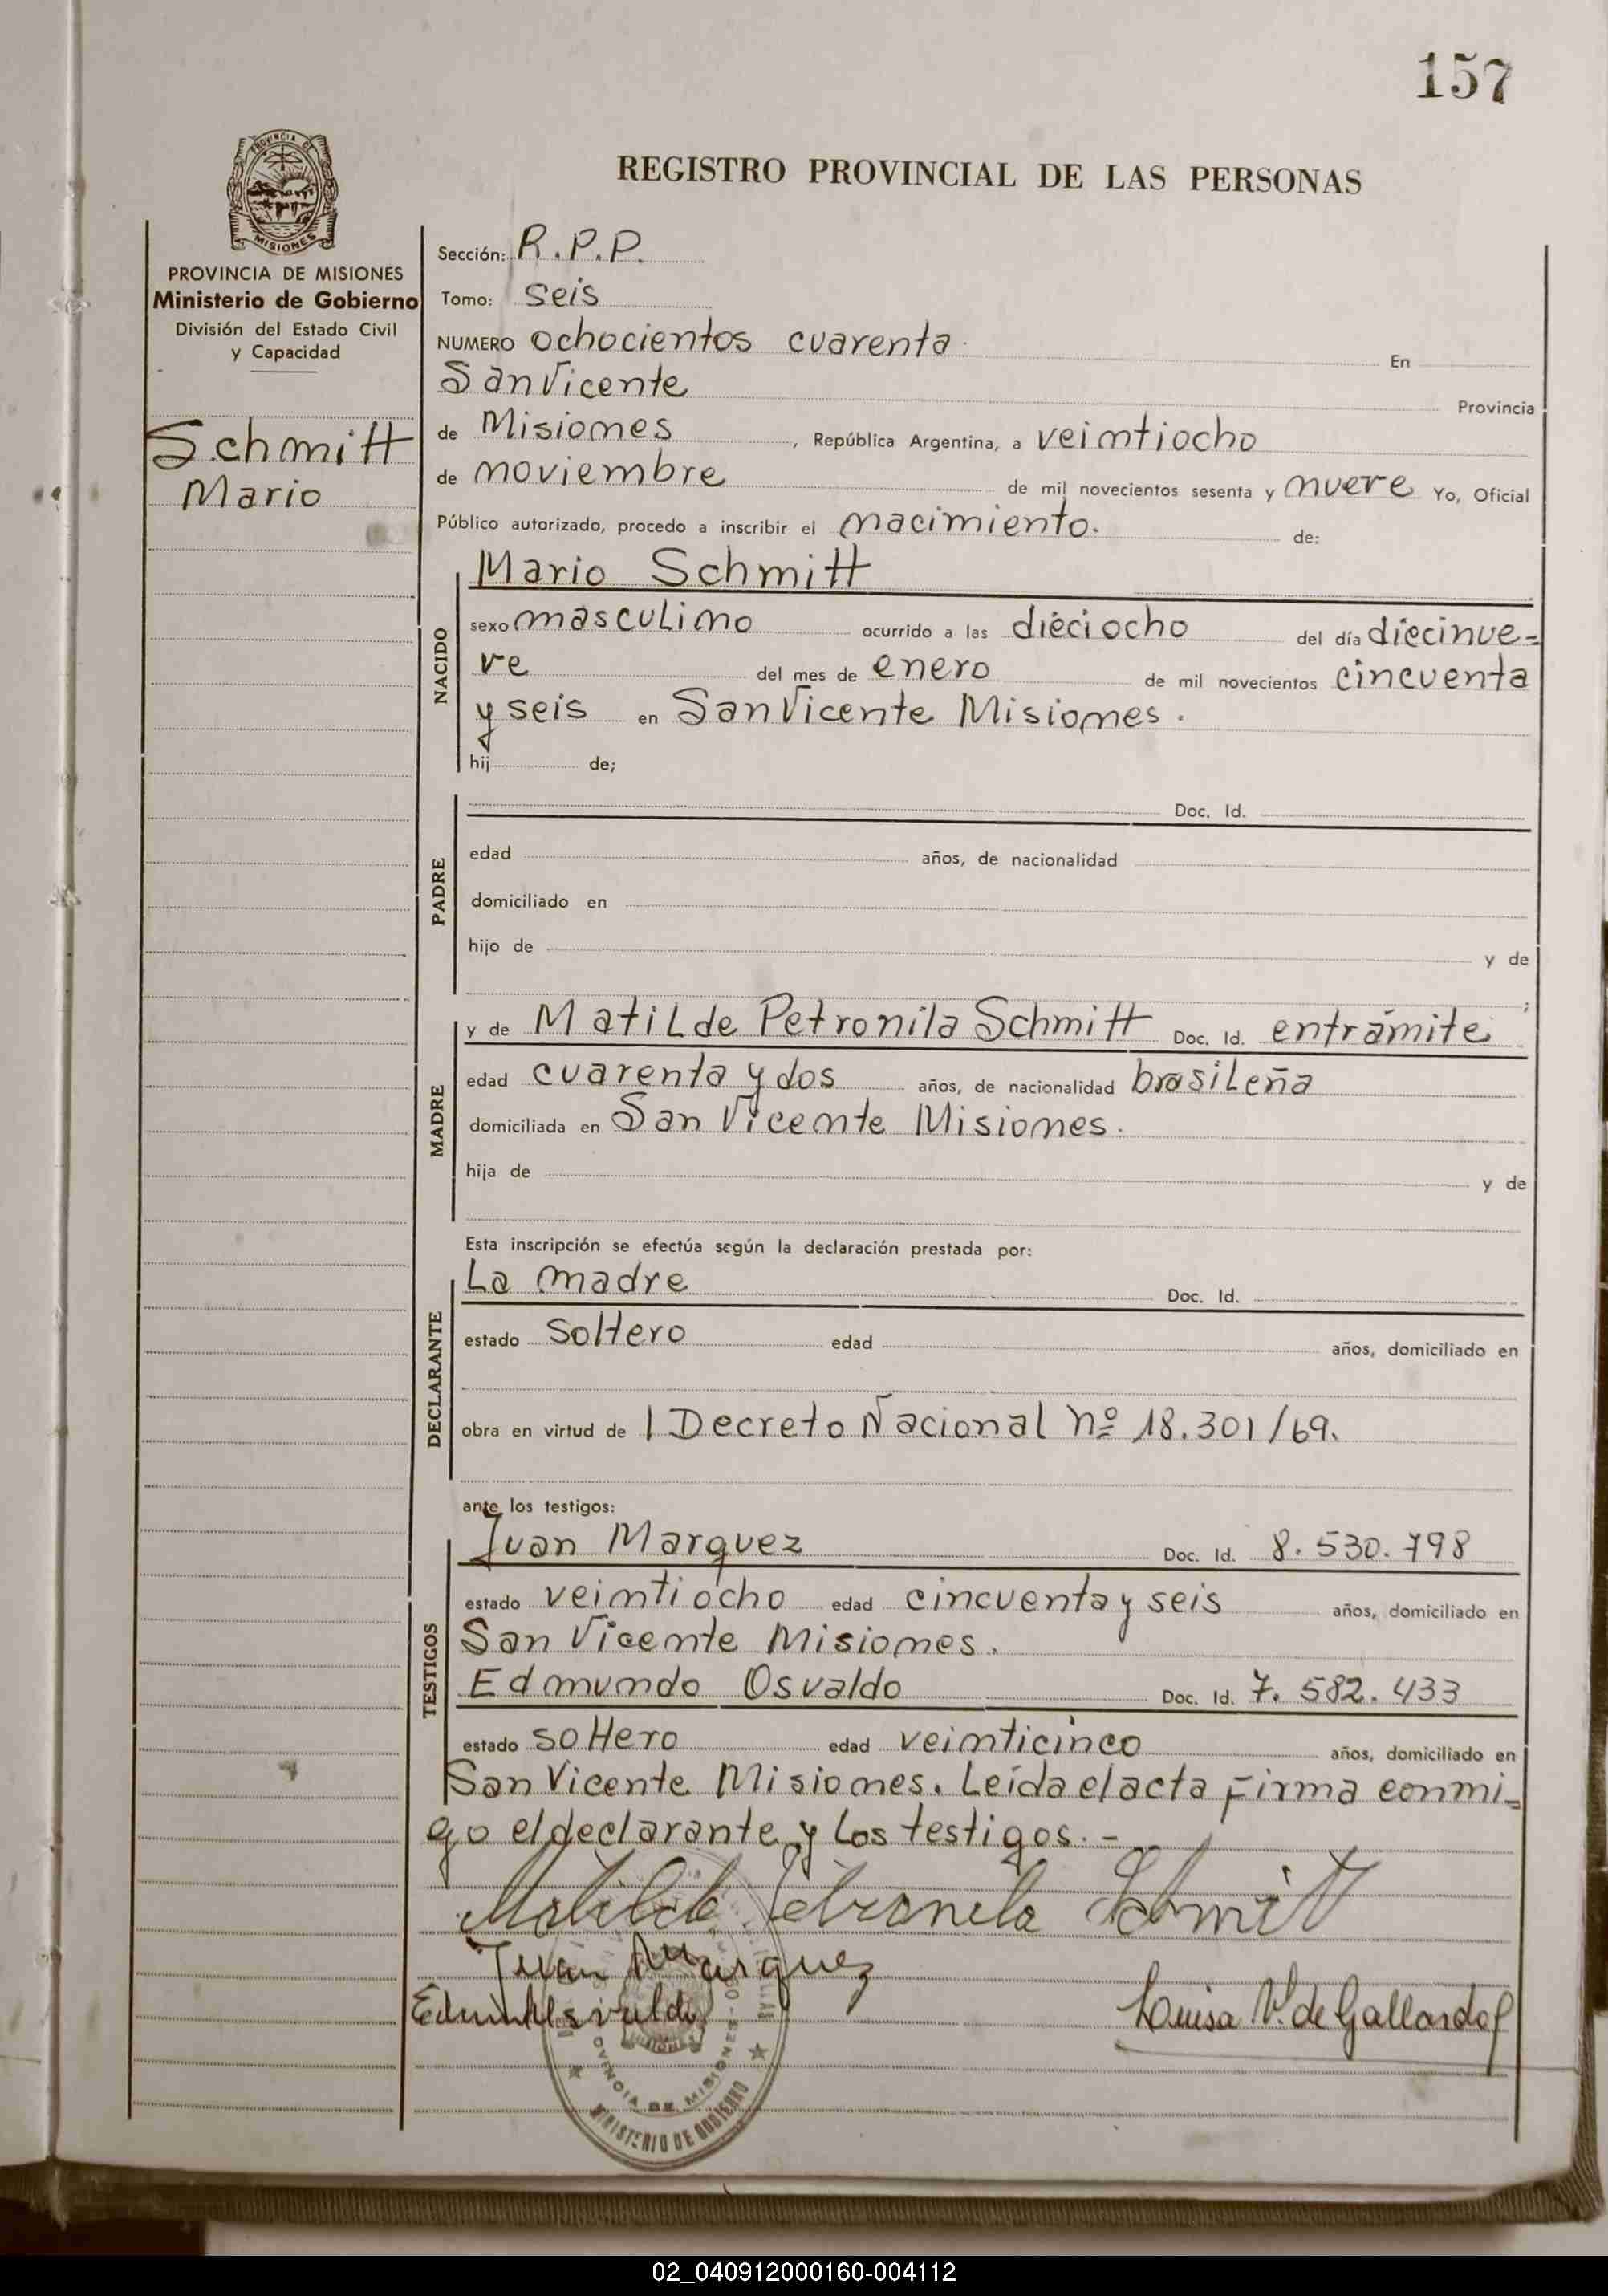 157
PROVINCIA DE
MISIONES
REGISTRO PROVINCIAL DE LAS PERSONAS
PROVINCIA DE MISIONES
Ministerio de Gobierno
División del Estado Civil
y Capacidad
Schmitt
Mario
Sección: R.P.P.
Tomo: seis
NUMERO ochocientos cuarenta. En
San Vicente Provincia
de Misiones, República Argentina, a veintiocho
de noviembre de mil novecientos sesenta y nueve Yo, Oficial
Público autorizado, procedo a inscribir el nacimiento. de:
NACIDO
Mario Schmitt
sexo masculino ocurrido a las dieciocho del día diecinue=
ve del mes de enero de mil novecientos cincuenta
y seis en San Vicente Misiones.
hij de;
PADRE
Doc. Id.
edad años, de nacionalidad
domiciliado en
hijo de y de
MADRE
y de Matilde Petronila Schmitt Doc. Id. entrámite
edad cuarenta y dos años, de nacionalidad brasileña
domiciliada en San Vicente Misiones.
hija de y de
Esta inscripción se efectúa según la declaración prestada por:
DECLARANTE
La madre Doc. Id.
estado soltero edad años, domiciliado en
obra en virtud de l Decreto Nacional nº 18.301/69.
ante los testigos:
TESTIGOS
Juan Marquez Doc. Id. 8.530.798
estado veintiocho edad cincuenta y seis años, domiciliado en
San Vicente Misiones.
Edmundo Osvaldo Doc. Id. 7.582.433
estado soltero edad veinticinco años, domiciliado en
San Vicente Misiones. Leída el acta firma conmi-
go el declarante y los testigos.-
Matilde Petronila Schmitt
Juan Marquez
Luisa V. de Gallardo
PROVINCIA DE MISIONES
MINISTERIO DE GOBIERNO
02_040912000160-004112